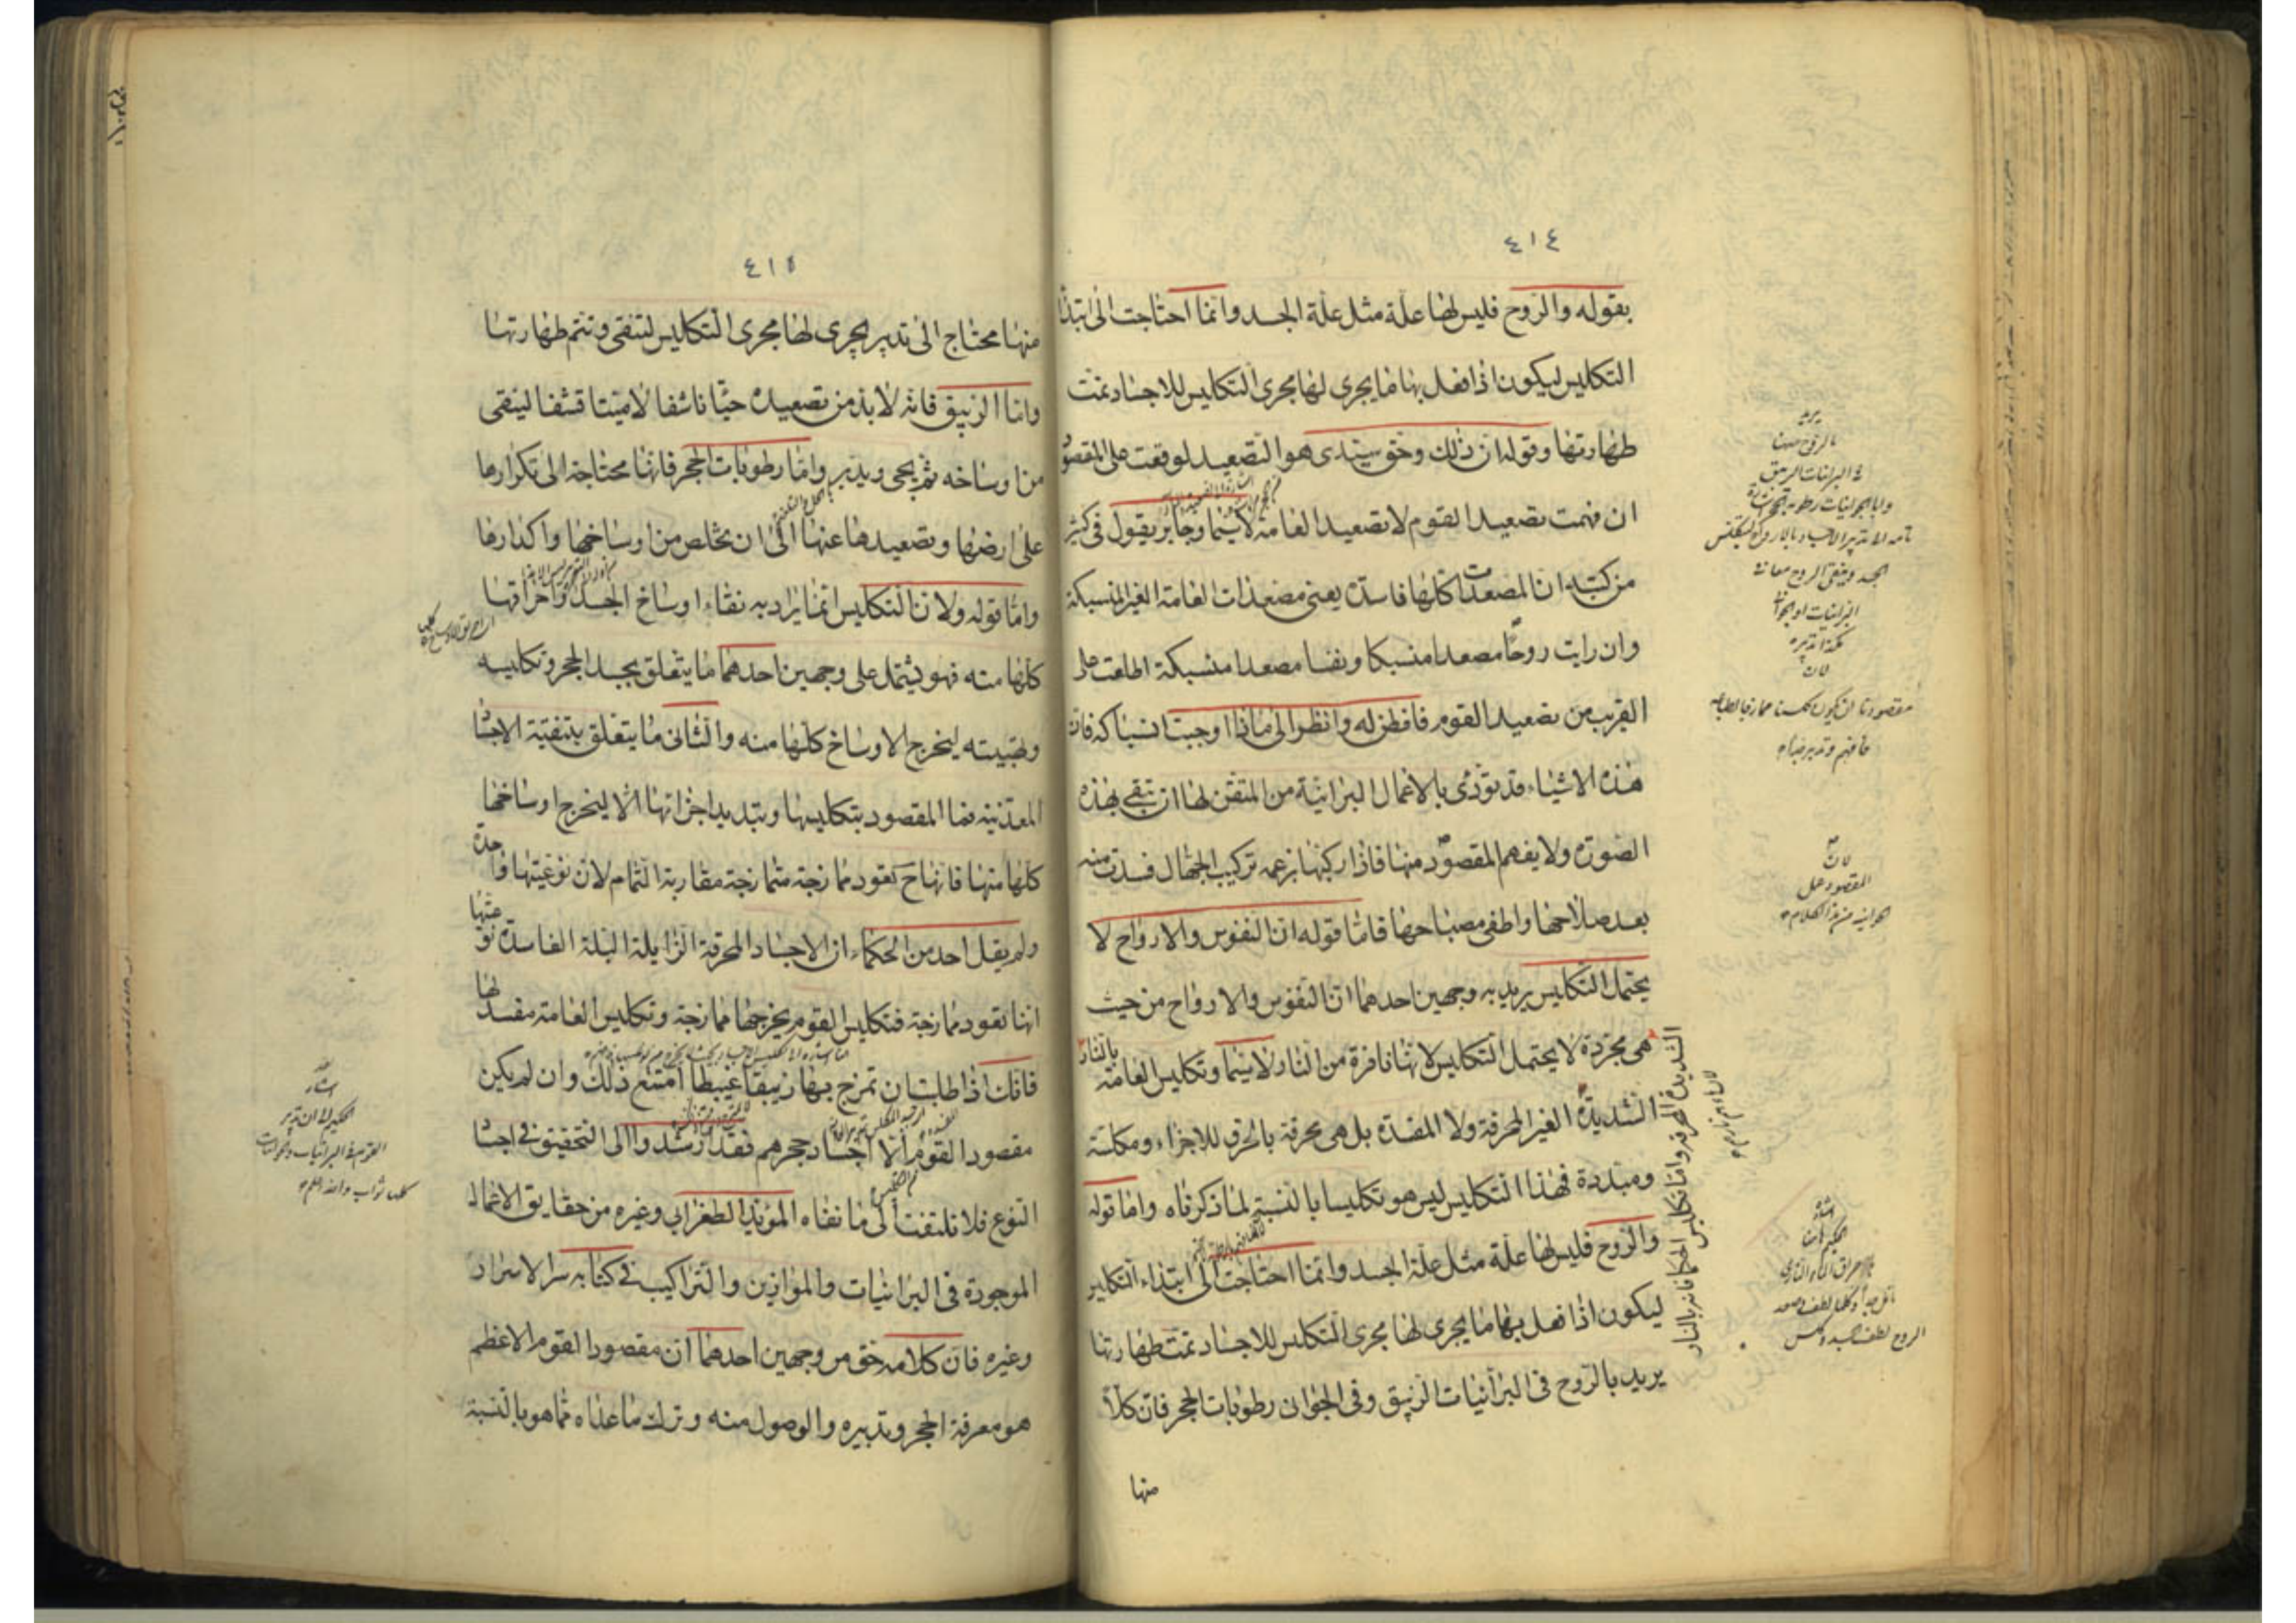 ٤١٤
بقوله والروح فليس لها علة مثل علة الجسد وانما احتاجت الى ابتدا
التكليس ليكون اذا فعل بها ما يجرى لها مجرى التكليس للاجساد تمت
طهارتها وقوله ان ذلك وحق سيدى هو التصعيد لوقعت على المقصود
ان فهمت تصعيد القوم لا تصعيد العامة لا سيما وجابر يقول فى كثير
من كتبه ان المصعدات كلها فاسدة يعنى مصعدات العامة الغير المنسبكة
وان رايت روحا مصعدا منسبكا ونفسا مصعدا منسبكة اطلعت على
القريب من تصعيد القوم فافطن له وانظر الى ماذا اوجبت انسباكه فان
هذه الاشياء قد تؤدى بالاعمال البرانية من المتقن لها ان تبقى بهذه
الصورة ولا يفهم المقصود منها فاذا ركبها بزعمه تركيب الجهال فسدت منه
بعد صلاحها واطفى مصباحها فاما قوله ان النفوس والارواح لا
يحتمل التكليس يريد به وجهين احدهما ان النفوس والارواح من حيث
هى مجردة لا يحتمل التكليس لانها نافرة من النار لا سيما وتكليس العامة بالنار
الشديدة المحرقة واما تكليس الحكما فانه بالنار
الشديدة الغير المحرقة ولا المفسدة بل هى محرقة بالحرق للاجزاء ومكلسة
ومبددة فهذا التكليس ليس هو تكليسا بالنسبة لما ذكرناه واما قوله
والروح فليس لها علة مثل علة الجسد وانما احتاجت الى ابتداء التكليس
ليكون اذا فعل بها ما يجرى لها مجرى التكليس للاجساد تمت طهارتها
يريد بالروح فى البرانيات الزيبق وفى الجوان رطوبات الحجر فان كلا
منها
يريد
بالروح هنا
فى البرانيات الزيبق
لان
فافهم وتدبر
لان
المقصود هل
٤١٥
منها محتاج الى تدبير يجرى لها مجرى التكليس لتنقى وتتم طهارتها
واما الزيبق فانه لابد من تصعيده حيا ناشفا لا ميتا قشفا لينقى
من اوساخه ثم يحى ويدبر واما رطوبات الحجر فانها محتاجة الى تكرارها
على ارضها وتصعيدها عنها الى ان تخلص من اوساخها واكدارها
واما قوله ولان التكليس انما يراد به نقاء اوساخ الجسد واحراقها
كلها منه فهو يشتمل على وجهين احدهما ما يتعلق بجسد الحجر وتكليسه
وتبييته ليخرج الاوساخ كلها منه والثانى ما يتعلق بتنقية الاجساد
المعدنية فما المقصود بتكليسها وتبديد اجزائها الا ليخرج اوساخها
كلها منها فانها ح تعود ممازجة متمازجة مقاربة التمام لان نوعيتها واحدة
ولم يقل احد من الحكماء ان الاجساد المحرقة الزايلة البلة الفاسدة نوعيتها
انها تعود ممازجة فتكليس القوم يخرجها ممازجة وتكليس العامة مفسد لها
فانك اذا طلبت ان تمزج بها زيبقا عبيطا امتنع ذلك وان لم يكن
مقصود القوم الا اجساد حجرهم فقد ارشدوا الى التحقيق فى اجساد
النوع فلا تلتفت الى ما نفاه المؤيد الطغرايى وغيره من حقايق الاعمال
الموجودة فى البرانيات والموازين والتراكيب فى كتابه سر الاسرار
وغيره فان كلامه حق من وجهين احدهما ان مقصود القوم الاعظم
هو معرفة الحجر وتدبيره والوصول منه وترك ما عداه مما هو بالنسبة
اشار
الحكيم الى ان تدبير
القوم فى البرانيات والجوانيات